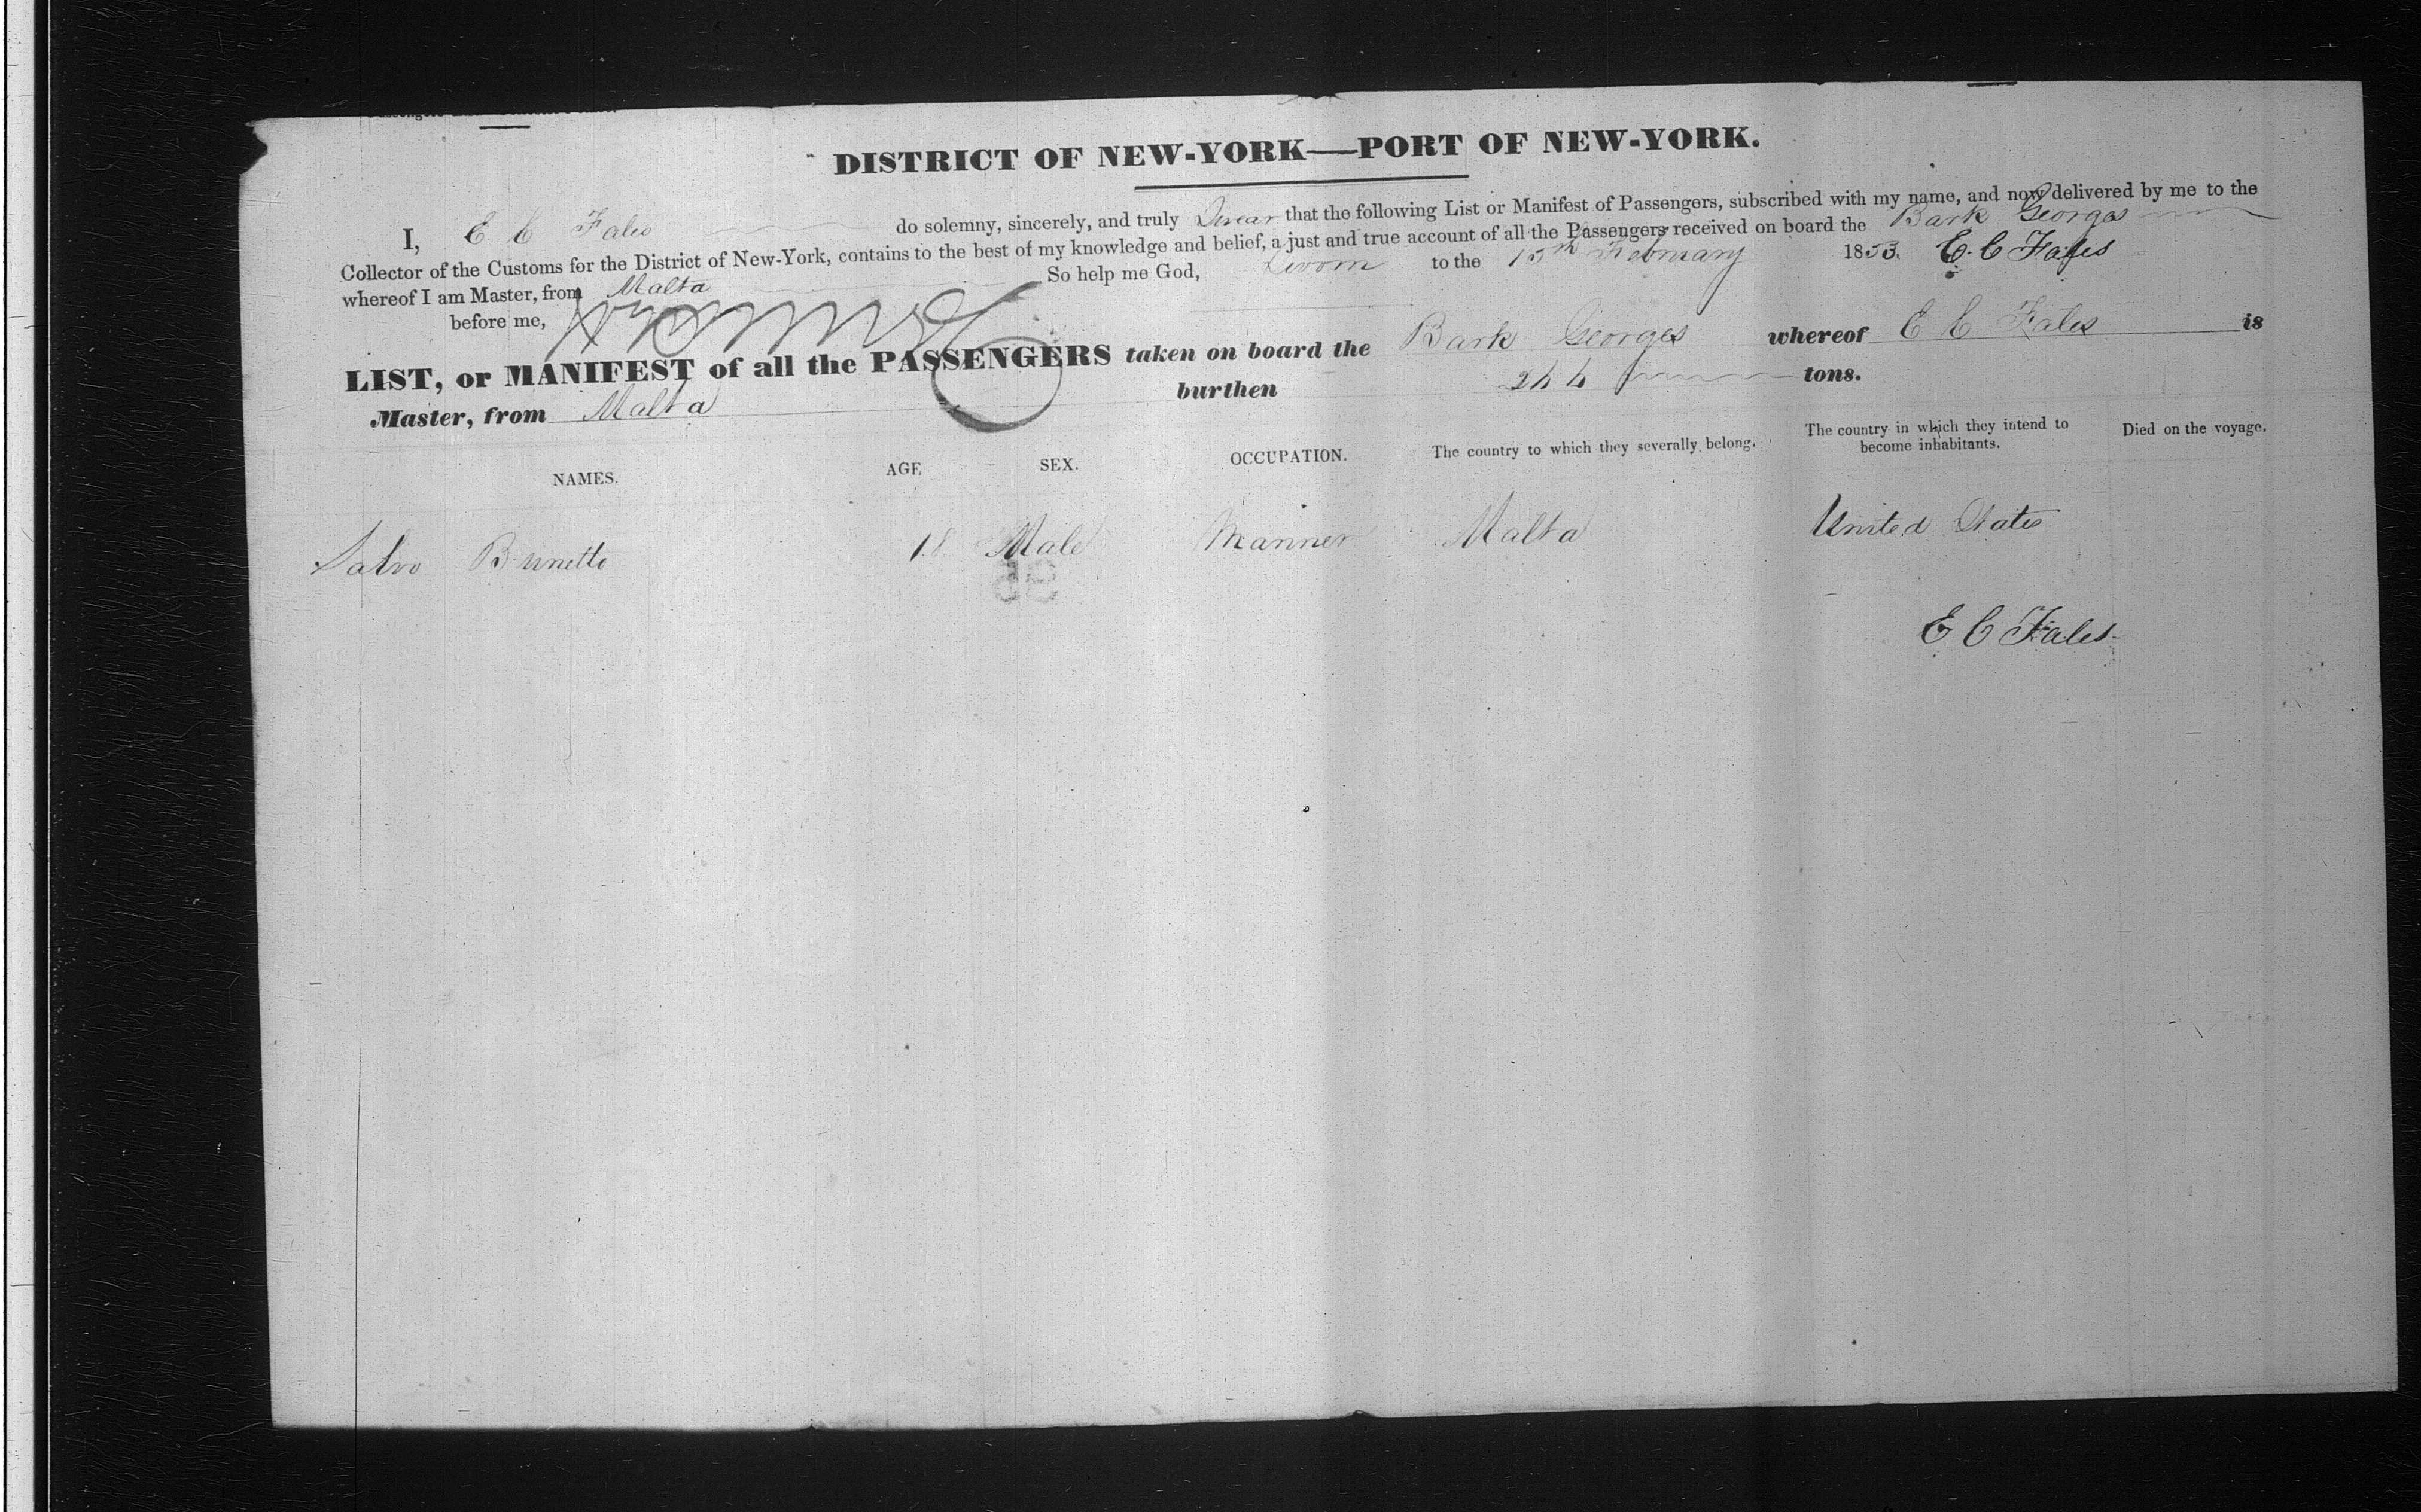 DISTRICT OF NEW-YORK—PORT OF NEW-YORK.
I, E C Fales do solemny, sincerely, and truly Swear that the following List or Manifest of Passengers, subscribed with my name, and now delivered by me to the
Collector of the Customs for the District of New-York, contains to the best of my knowledge and belief, a just and true account of all the Passengers received on board the Bark Georges
whereof I am Master, from Malta So help me God, Sworn to the 15th February 1853. E. C Fales
before me,
LIST, or MANIFEST of all the PASSENGERS taken on board the Bark Georges whereof E C Fales is
Master, from Malta burthen tons.
NAMES. AGE SEX. OCCUPATION. The country to which they severally belong. The country in which they intend to become inhabitants. Died on the voyage.
Salvo Brunetto 18 Male Mariner Malta United States
E C Fales